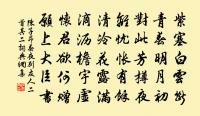 紫塞白雲斷
青春明月初
對此芳樽夜
離憂悵有餘
清冷花露滿
滴瀝檐宇虛
懷君欲何贈
願上大臣書
陳子昂春夜別友人二
首其二詞典網集